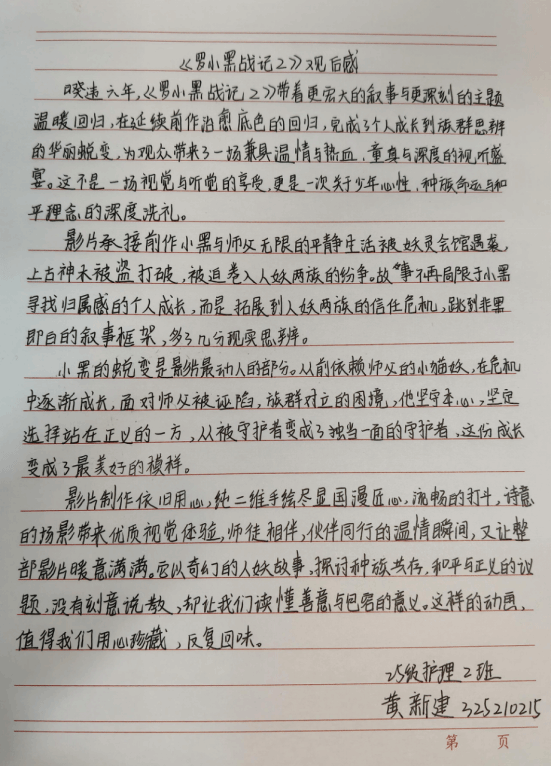 《罗小黑战记2》观后感
暌违六年,《罗小黑战记2》带着更宏大的叙事与更深刻的主题
温暖回归,在延续前作治愈底色的回归,完成了个人成长到族群思辨
的华丽蜕变,为观众带来了一场兼具温情与热血、童真与深度的视听盛
宴。这不是一场视觉与听觉的享受,更是一次关于少年心性、种族命运与和
平理念的深度洗礼。
影片承接前作小黑与师父无限的平静生活被妖灵会馆遇袭,
上古神木被盗打破,被迫卷入人妖两族的纷争。故事不再局限于小黑
寻找归属感的个人成长,而是拓展到人妖两族的信任危机,跳到非黑
即白的叙事框架,多了几分现实思辨。
小黑的蜕变是影片最动人的部分。从前依赖师父的小猫妖,在危机
中逐渐成长,面对师父被诬陷,族群对立的困境,他坚守本心,坚定
选择站在正义的一方,从被守护者变成了独当一面的守护者,这份成长
变成了最美好的模样。
影片制作依旧用心,纯二维手绘尽显国漫匠心,流畅的打斗,诗意
的场影带来优质视觉体验,师徒相伴,伙伴同行的温情瞬间,又让整
部影片暖意满满。它以奇幻的人妖故事,探讨种族共存,和平与正义的议
题,没有刻意说教,却让我们读懂善意与包容的意义。这样的动画,
值得我们用心珍藏,反复回味。
25级护理2班
黄新建 325210215
第 页